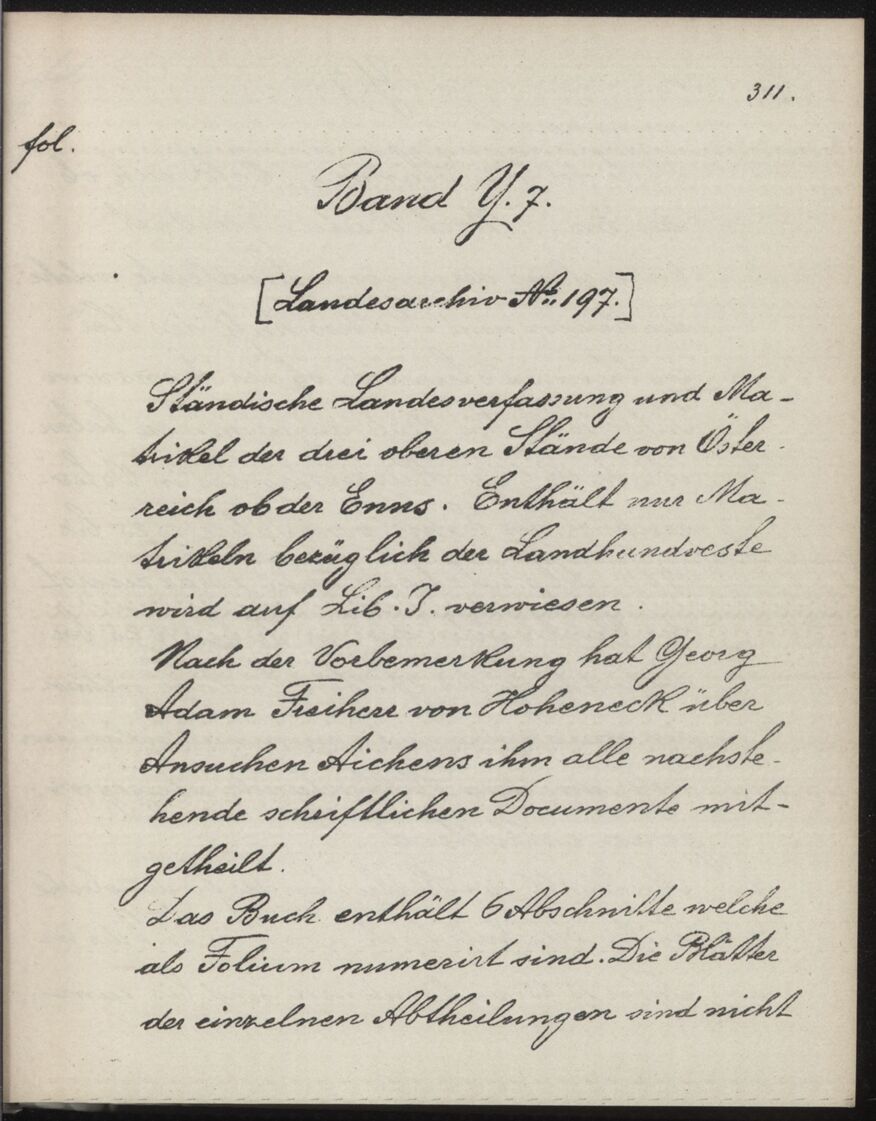 311.
fol.
Band Y. 7.
[Landesarchiv No. 197.]
Ständische Landesverfassung und Ma-
trikel der drei oberen Stände von Öster-
reich ob der Enns. Enthält nur Ma-
trikeln bezüglich der Landhandveste
wird auf Lib. I. verwiesen.
Nach der Vorbemerkung hat Georg
Adam Freiherr von Hoheneck über
Ansuchen Aichens ihm alle nachste-
hende schriftlichen Documente mit-
getheilt.
Das Buch enthält 6 Abschnitte welche
als Folium numerirt sind. Die Blätter
der einzelnen Abtheilungen sind nicht